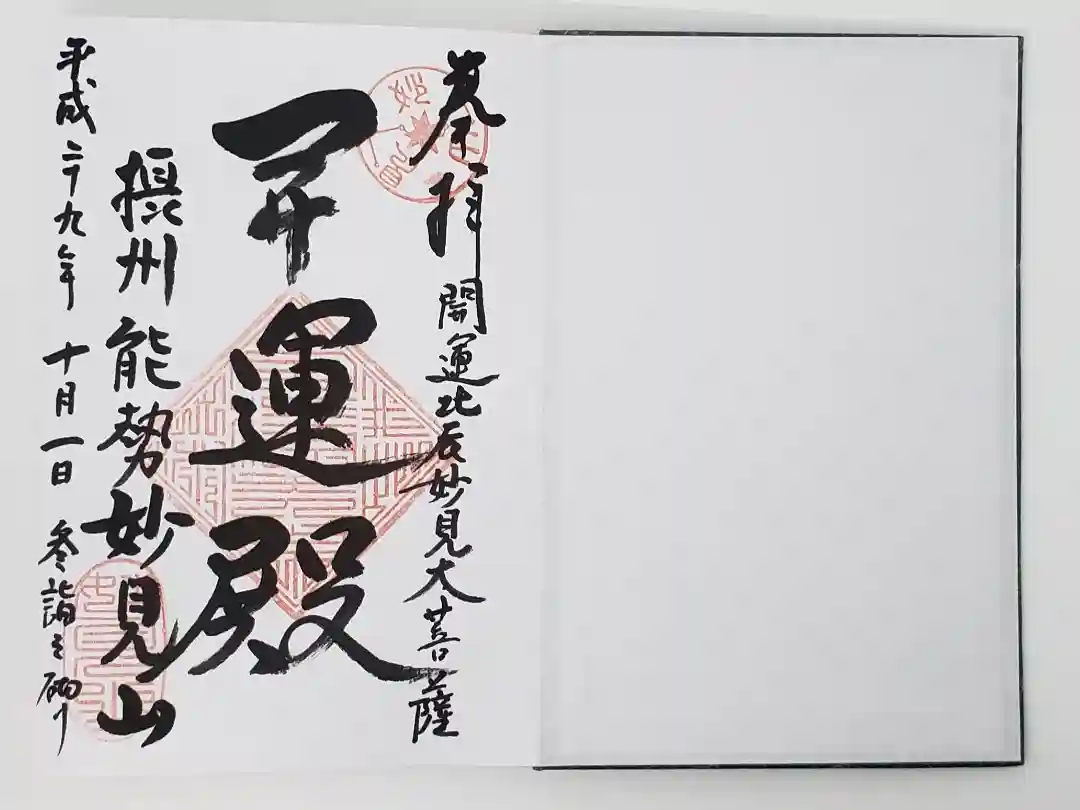 奉拝 開運北辰妙見大菩薩
開運殿
摂州能勢妙見山
平成二十九年十月一日 参詣之砌